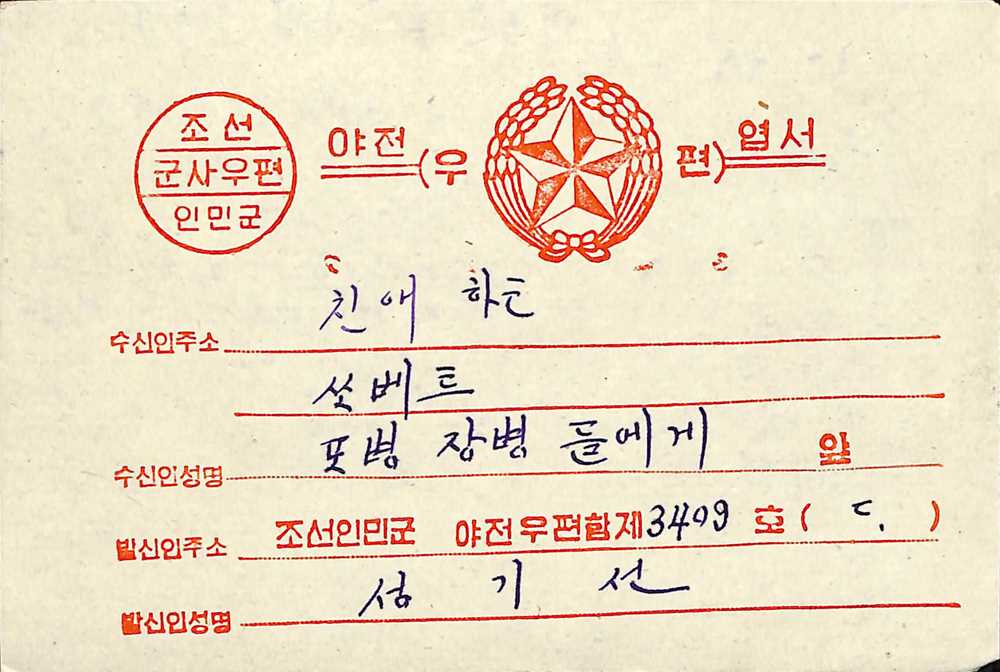 조선
군사우편
인민군
야전(우편)엽서
친애 하는
수신인주소
쏘베트
포병 장병 들에게 앞
수신인성명
발신인주소 조선인민군 야전우편함제3409호( ㄷ. )
성 기 선
발신인성명